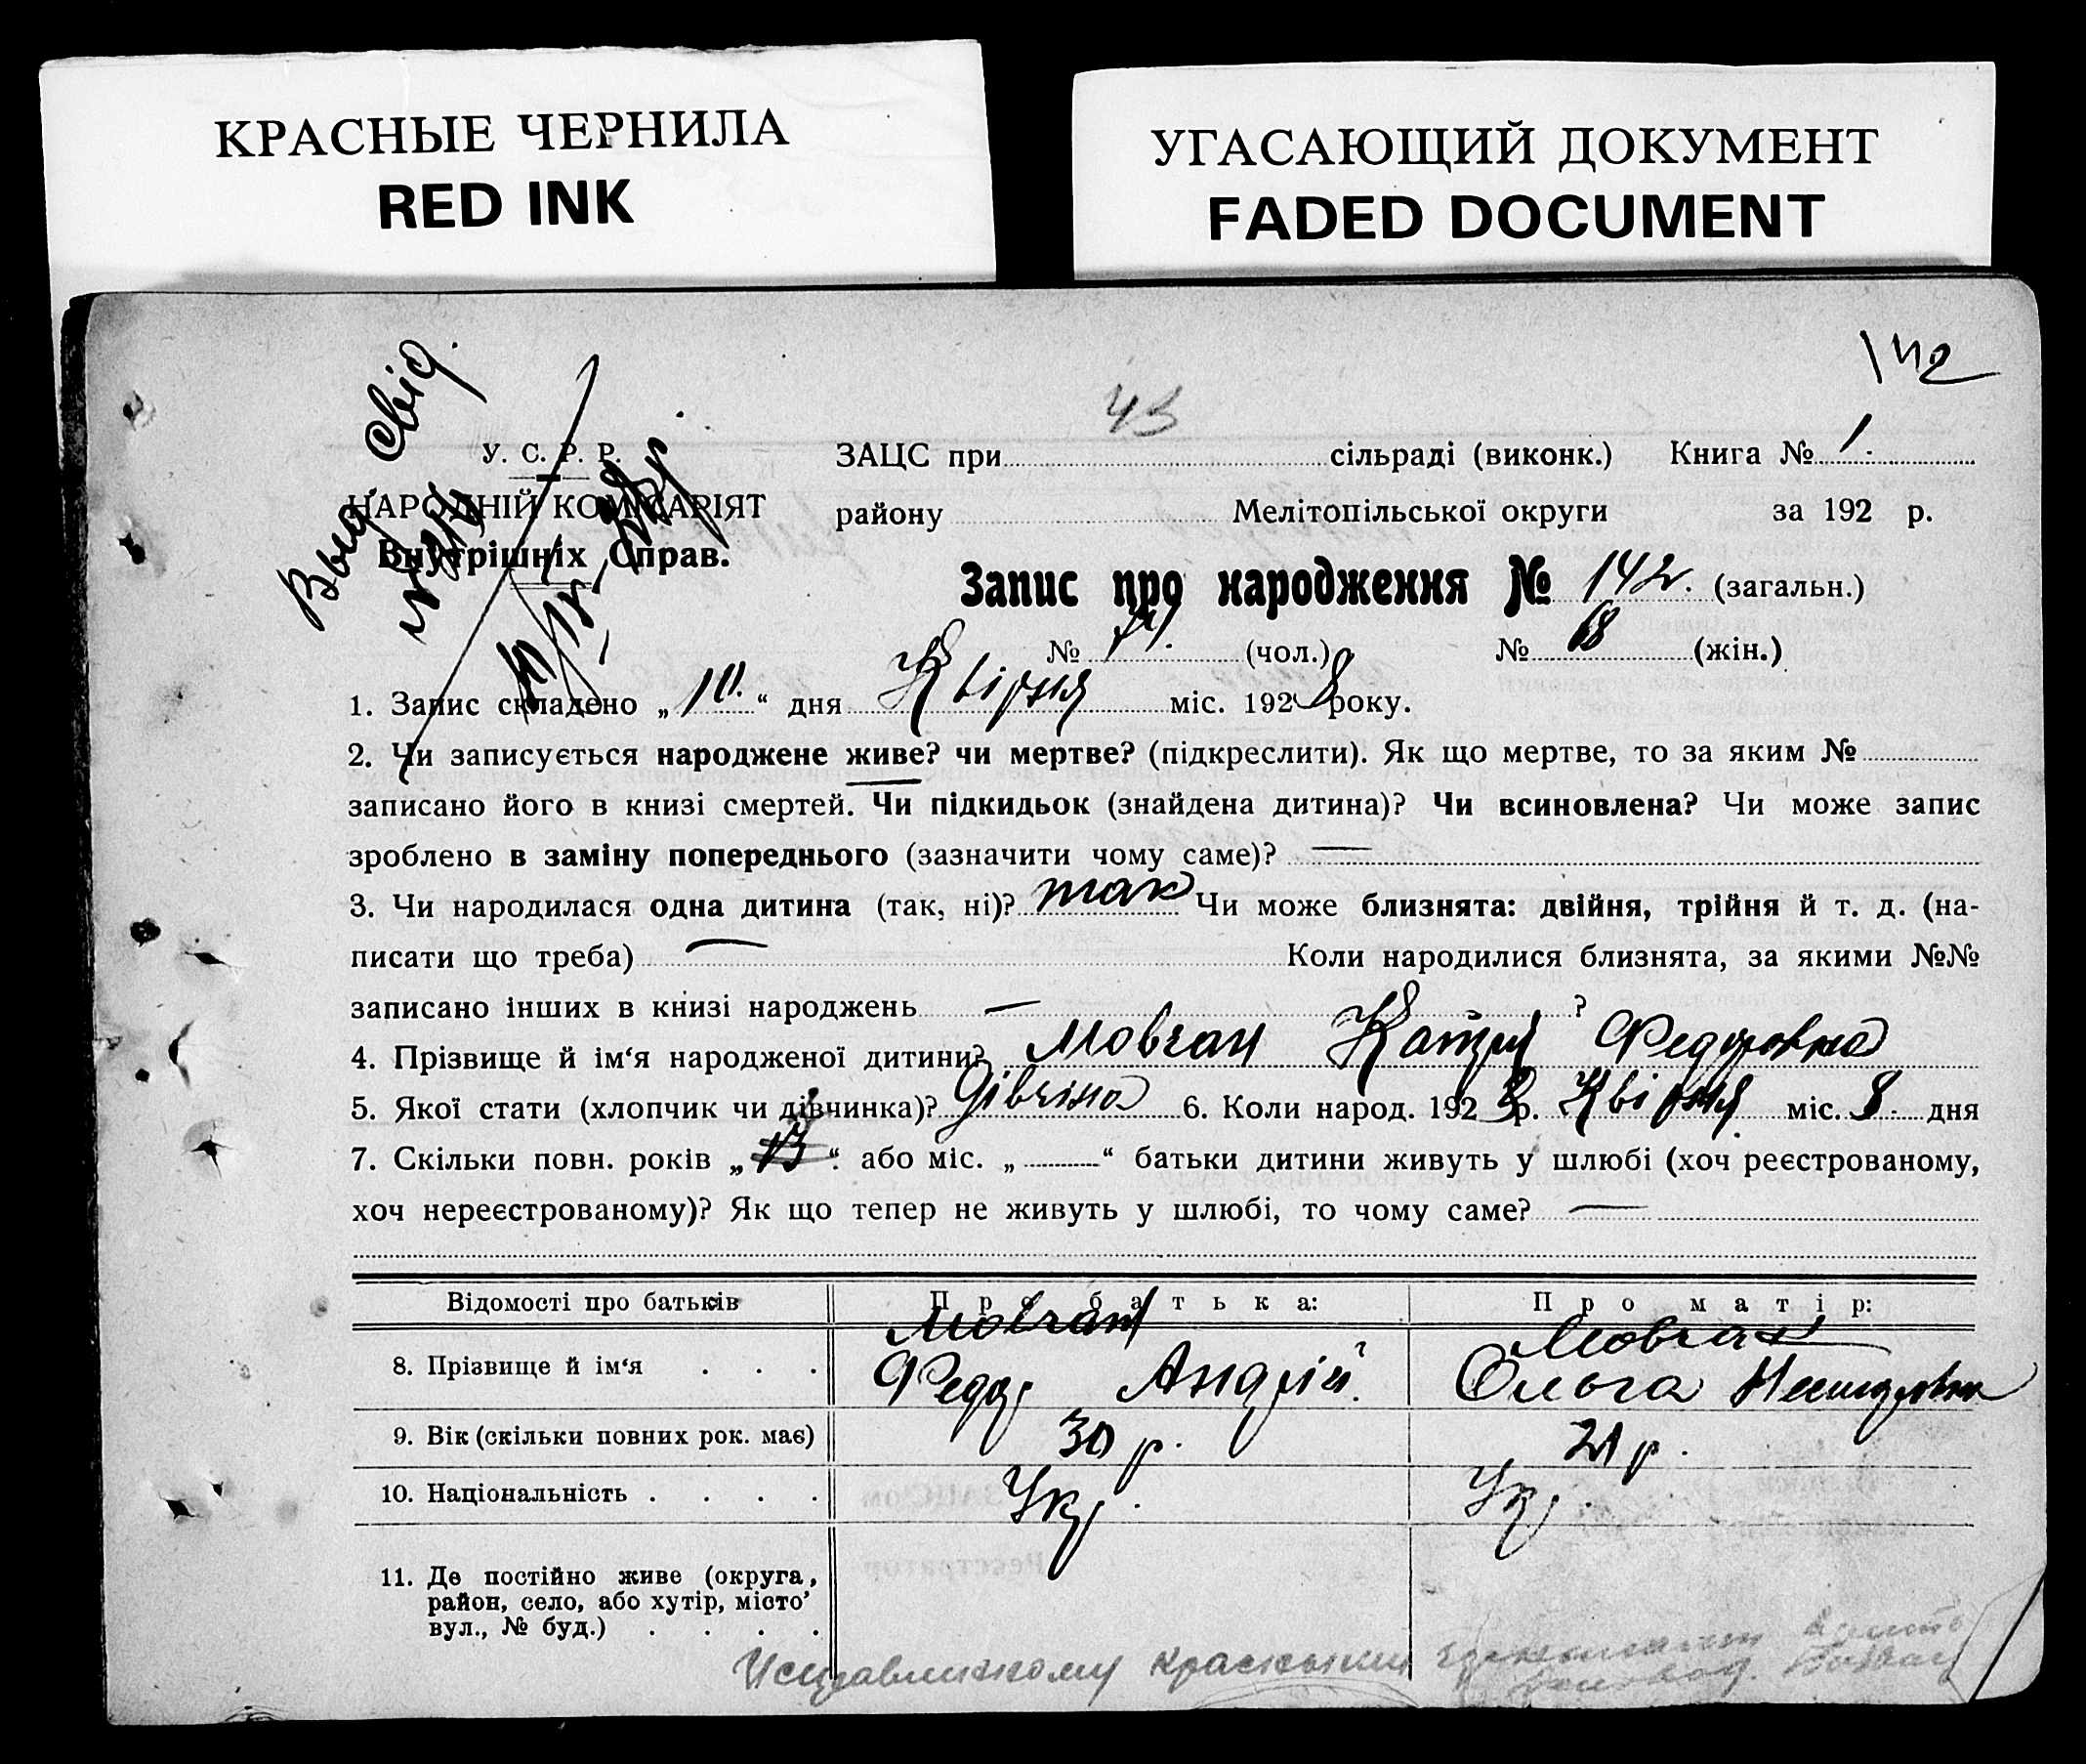 КРАСНЫЕ ЧЕРНИЛА
RED INK
УГАСАЮЩИЙ ДОКУМЕНТ
FADED DOCUMENT
142
43
Выд Свід.
У. С. Р. Р.
НАРОДНІЙ КОМІСАРІЯТ
Внутрішніх Справ.
ЗАЦС при сільраді (виконк.) Книга № 1.
району Мелітопільської округи за 192 р.
Запис про народження № 142. (загальн.)
№ (чол.) № 68 (жін.)
1. Запис складено „10.“ дня Квірня міс. 1928 року.
2. Чи записується народжене живе? чи мертве? (підкреслити). Як що мертве, то за яким №
записано його в книзі смертей. Чи підкидьок (знайдена дитина)? Чи всиновлена? Чи може запис
зроблено в заміну попереднього (зазначити чому саме)? —
3. Чи народилася одна дитина (так, ні)? так Чи може близнята: двійня, трійня й т. д. (на-
писати що треба) — Коли народилися близнята, за якими №№
записано інших в книзі народжень — ?
4. Прізвище й ім‘я народженої дитини? Мовчан Катря Федоровна
5. Якої стати (хлопчик чи дівчинка)? Дівчина 6. Коли народ. 1928 р. Квірня міс. 8. дня
7. Скільки повн. років „ “ або міс. „ “ батьки дитини живуть у шлюбі (хоч реєстрованому,
хоч нереєстрованому)? Як що тепер не живуть у шлюбі, то чому саме? —
Відомості про батьків Про батька: Про матір:
Мовчан Мовчан
8. Прізвище й ім‘я . . . Федор Андрій. Ольга
9. Вік (скільки повних рок. має) 30 р. 21 р.
10. Національність . . . . Укр. Укр.
11. Де постійно живе (округа,
район, село, або хутір, місто
вул., № буд.) . . . .
Исправленному красными